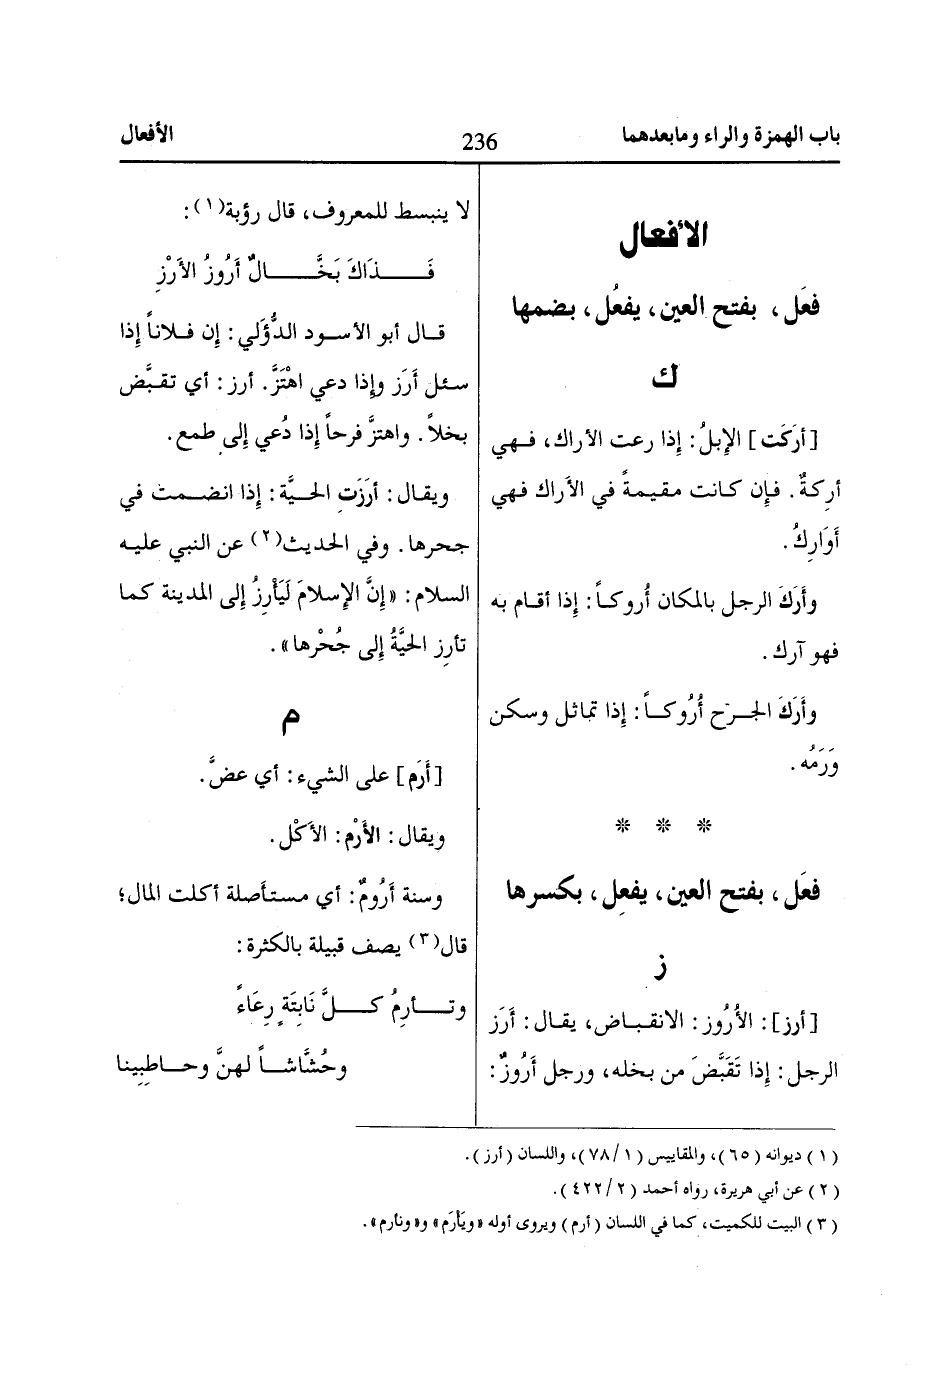 باب الهمزة والراء ومابعدهما
236
الأفعال
الأفعال
فعَل، بفتح العين، يفعُل، بضمها
ك
[أرَكَت] الإبلُ: إذا رعت الأراك، فهي
أركةٌ. فإن كانت مقيمةً في الأراك فهي
أوَارِكُ.
وأرَكَ الرجل بالمكان أُروكاً: إذا أقام به
فهو آرك.
وأَرَكَ الجرح أُرُوكاً: إذا تماثل وسكن
وَرَمُه.
* * *
فعَل، بفتح العين، يفعِل، بكسرها
ز
[أرز]: الأُرُوز: الانقباض، يقال: أرَز
الرجل: إذا تَقَبَّضَ من بخله، ورجل أَرُوزٌ:
لا ينبسط للمعروف، قال رؤبة(١):
فَذَاكَ بَخَّالٌ أَرُوزُ الأَرْزِ
قال أبو الأسود الدُّؤَلي: إن فلاناً إذا
سئل أَرَز وإذا دعي اهْتَزَّ. أرز: أي تقبَّض
بخلاً. واهتزَّ فرحاً إذا دُعي إلى طمع.
ويقال: أرَزَتِ الحيَّة: إذا انضمت في
جحرها. وفي الحديث(٢) عن النبي عليه
السلام: «إنَّ الإسلامَ لَيَأْرِزُ إلى المدينة كما
تأرِز الحيَّةُ إلى جُحْرها».
م
[أَرَم] على الشيء: أي عضَّ.
ويقال: الأَرْم: الأَكْل.
وسنة أَرُومٌ: أي مستأصلة أكلت المال؛
قال(٣) يصف قبيلة بالكثرة:
وتأرِمُ كلَّ نَابِتَةٍ رِعَاءً
وحُشَّاشاً لهنَّ وحاطِبِينا
(١) ديوانه (٦٥)، والمقاييس (٧٨/١)، واللسان (أرز).
(٢) عن أبي هريرة، رواه أحمد (٤٢٢/٢).
(٣) البيت للكميت، كما في اللسان (أرم) ويروى أوله «ويَأرَم» و«ونأرم».